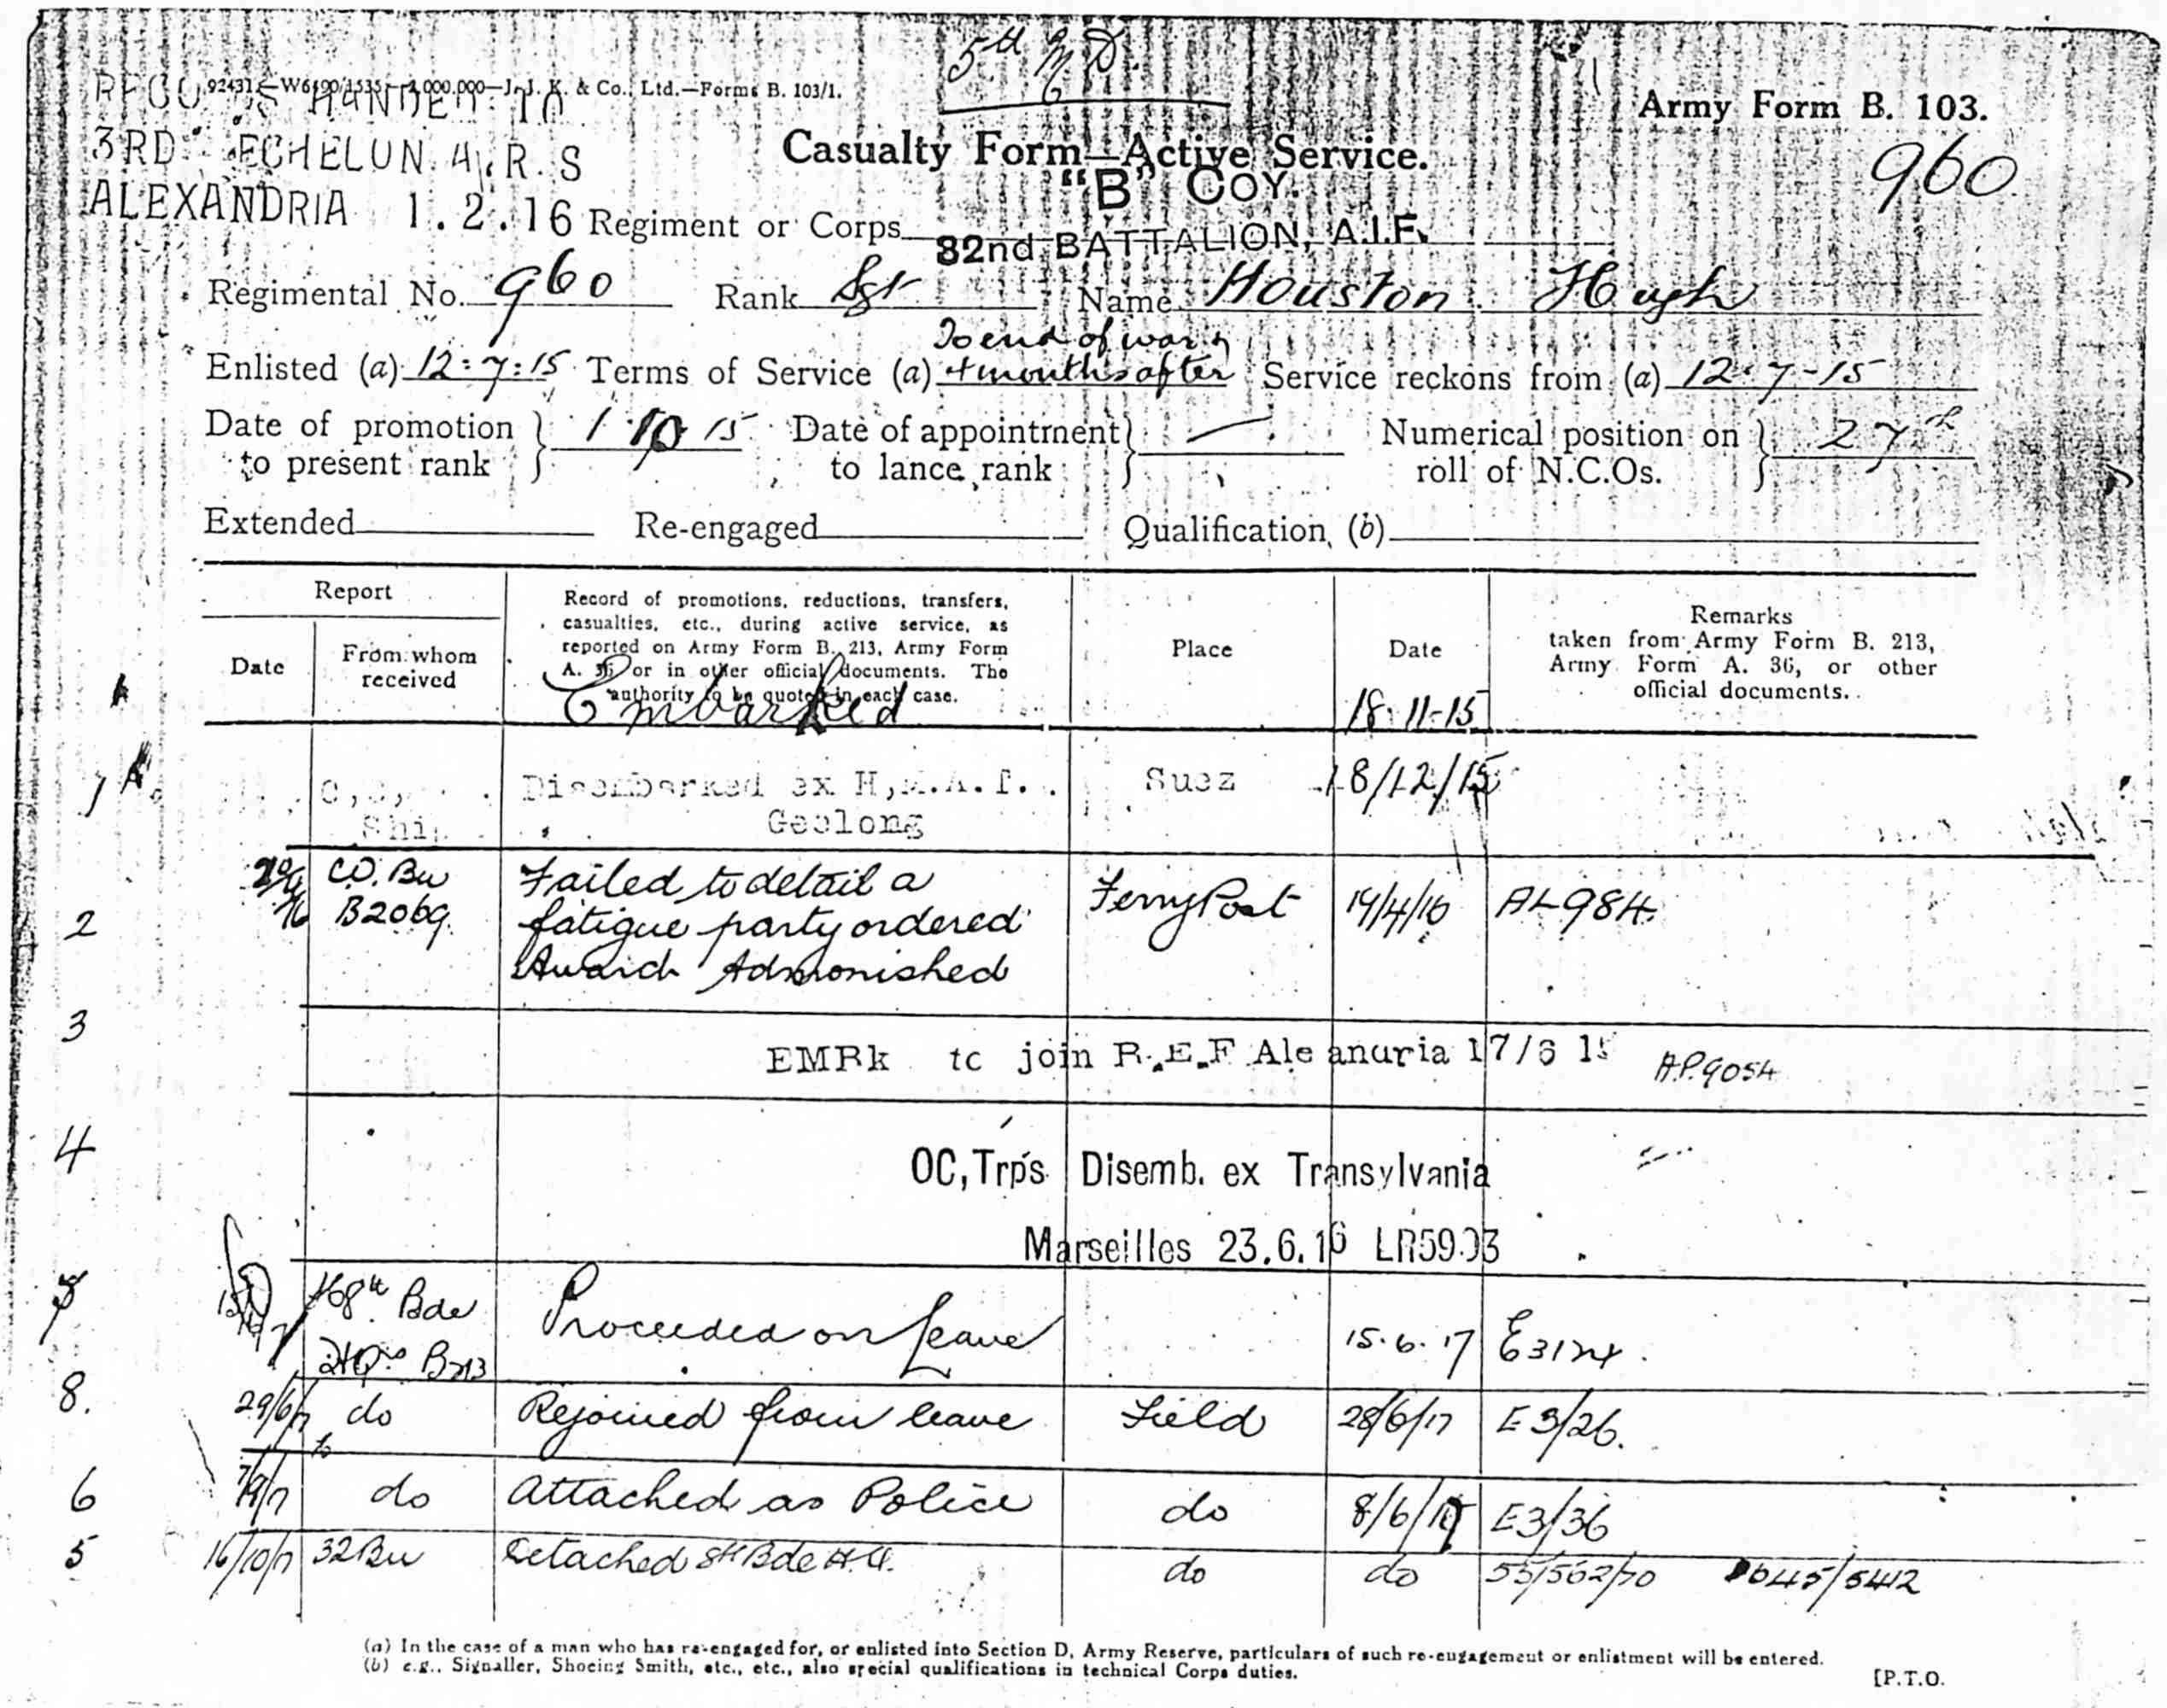 5th M D.
92431—W6490/1535—2,000,000—J. J. K. & Co., Ltd.—Forms B. 103/1.
HANDED TO
3RD ECHELON
ALEXANDRIA 1.2.16
Army Form B. 103.
960
Casualty Form—Active Service.
"B" COY.
Regiment or Corps 32nd BATTALION, A.I.F.
Regimental No. 960 Rank Sgt Name Houston Hugh
To end of war &
Enlisted (a) 12:7:15 Terms of Service (a) 4 months after Service reckons from (a) 12-7-15
Date of promotion to present rank } 1 10 15 Date of appointment to lance rank } — Numerical position on roll of N.C.Os. } 27th
Extended Re-engaged Qualification (b)
Report
Date
From whom received
Record of promotions, reductions, transfers,
casualties, etc., during active service, as
reported on Army Form B. 213, Army Form
A. 36 or in other official documents. The
authority to be quoted in each case.
Place
Date
Remarks
taken from Army Form B. 213,
Army Form A. 36, or other
official documents.
Embarked 18-11-15
1 O,C, Ship Disembarked ex H,M.A.T. Geelong Suez 18/12/15
2 CO. Bn B2069. Failed to detail a Ferry Post 14/4/16 AL984.
fatigue party ordered
Award Admonished
3 EMRk tc join B.E.F Ale anuria 17/6 A.P.9054
4 OC,Trps Disemb. ex Transylvania
Marseilles 23.6.16
7 8th Bde Proceeded on Leave 15.6.17
B213
8. 29/6/17 do Rejoined from leave Field 28/6/17 E3/26.
6 do Attached as Police do 8/6/17 E3/36
5 16/10/17 32Bn Detached 8th Bde H.Q. do do 55/562/70
(a) In the case of a man who has re-engaged for, or enlisted into Section D, Army Reserve, particulars of such re-engagement or enlistment will be entered.
(b) e.g., Signaller, Shoeing Smith, etc., etc., also special qualifications in technical Corps duties.
[P.T.O.